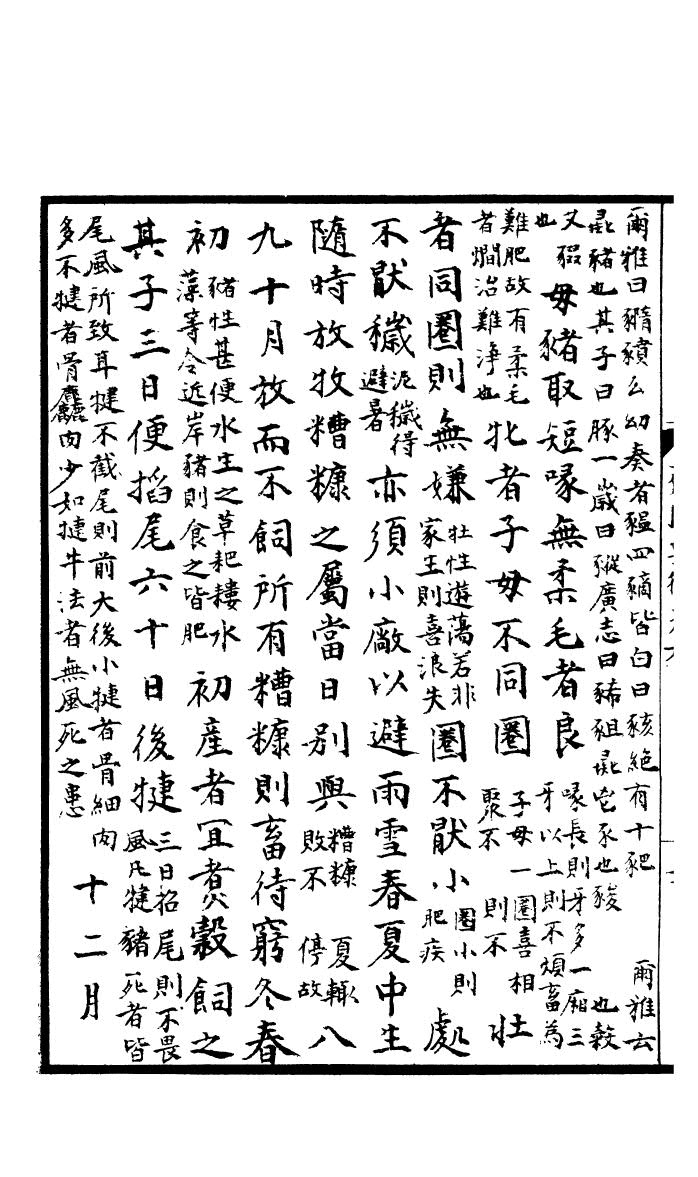 爾雅曰豶豶幺幼奏者豱四豴皆白曰豥絕有十豝 爾雅云
彘豬也其子曰豚一歲曰豵廣志曰豨豠彘豕也豯 也豰
艾豭
也
母豬取短喙無柔毛者良
喙長則牙多一廂三
牙以上則不煩畜為
難肥故有柔毛
者爓治難淨也
牝者子母不同圈
子母一圈喜相
聚不 則不
牡
者同圈則無嫌
牡性遊蕩若非
家生則喜浪失
圈不猒小
圈小則
肥疾
處
不猒穢
泥穢得
避暑
亦須小廠以避雨雪春夏中生
隨時放牧糟糠之屬當日別與
糟糠 夏輙
敗不 停故
八
九十月放而不飼所有糟糠則畜待窮冬春
初
豬性甚便水生之草耙耬水
藻等令近岸豬則食之皆肥
初產者宜煮穀飼之
其子三日便搯尾六十日後犍
三日搯尾則不畏
風凡犍豬死者皆
尾風所致耳犍不截尾則前大後小犍者骨細肉
多不犍者骨麤肉少如犍牛法者無風死之患
十二月